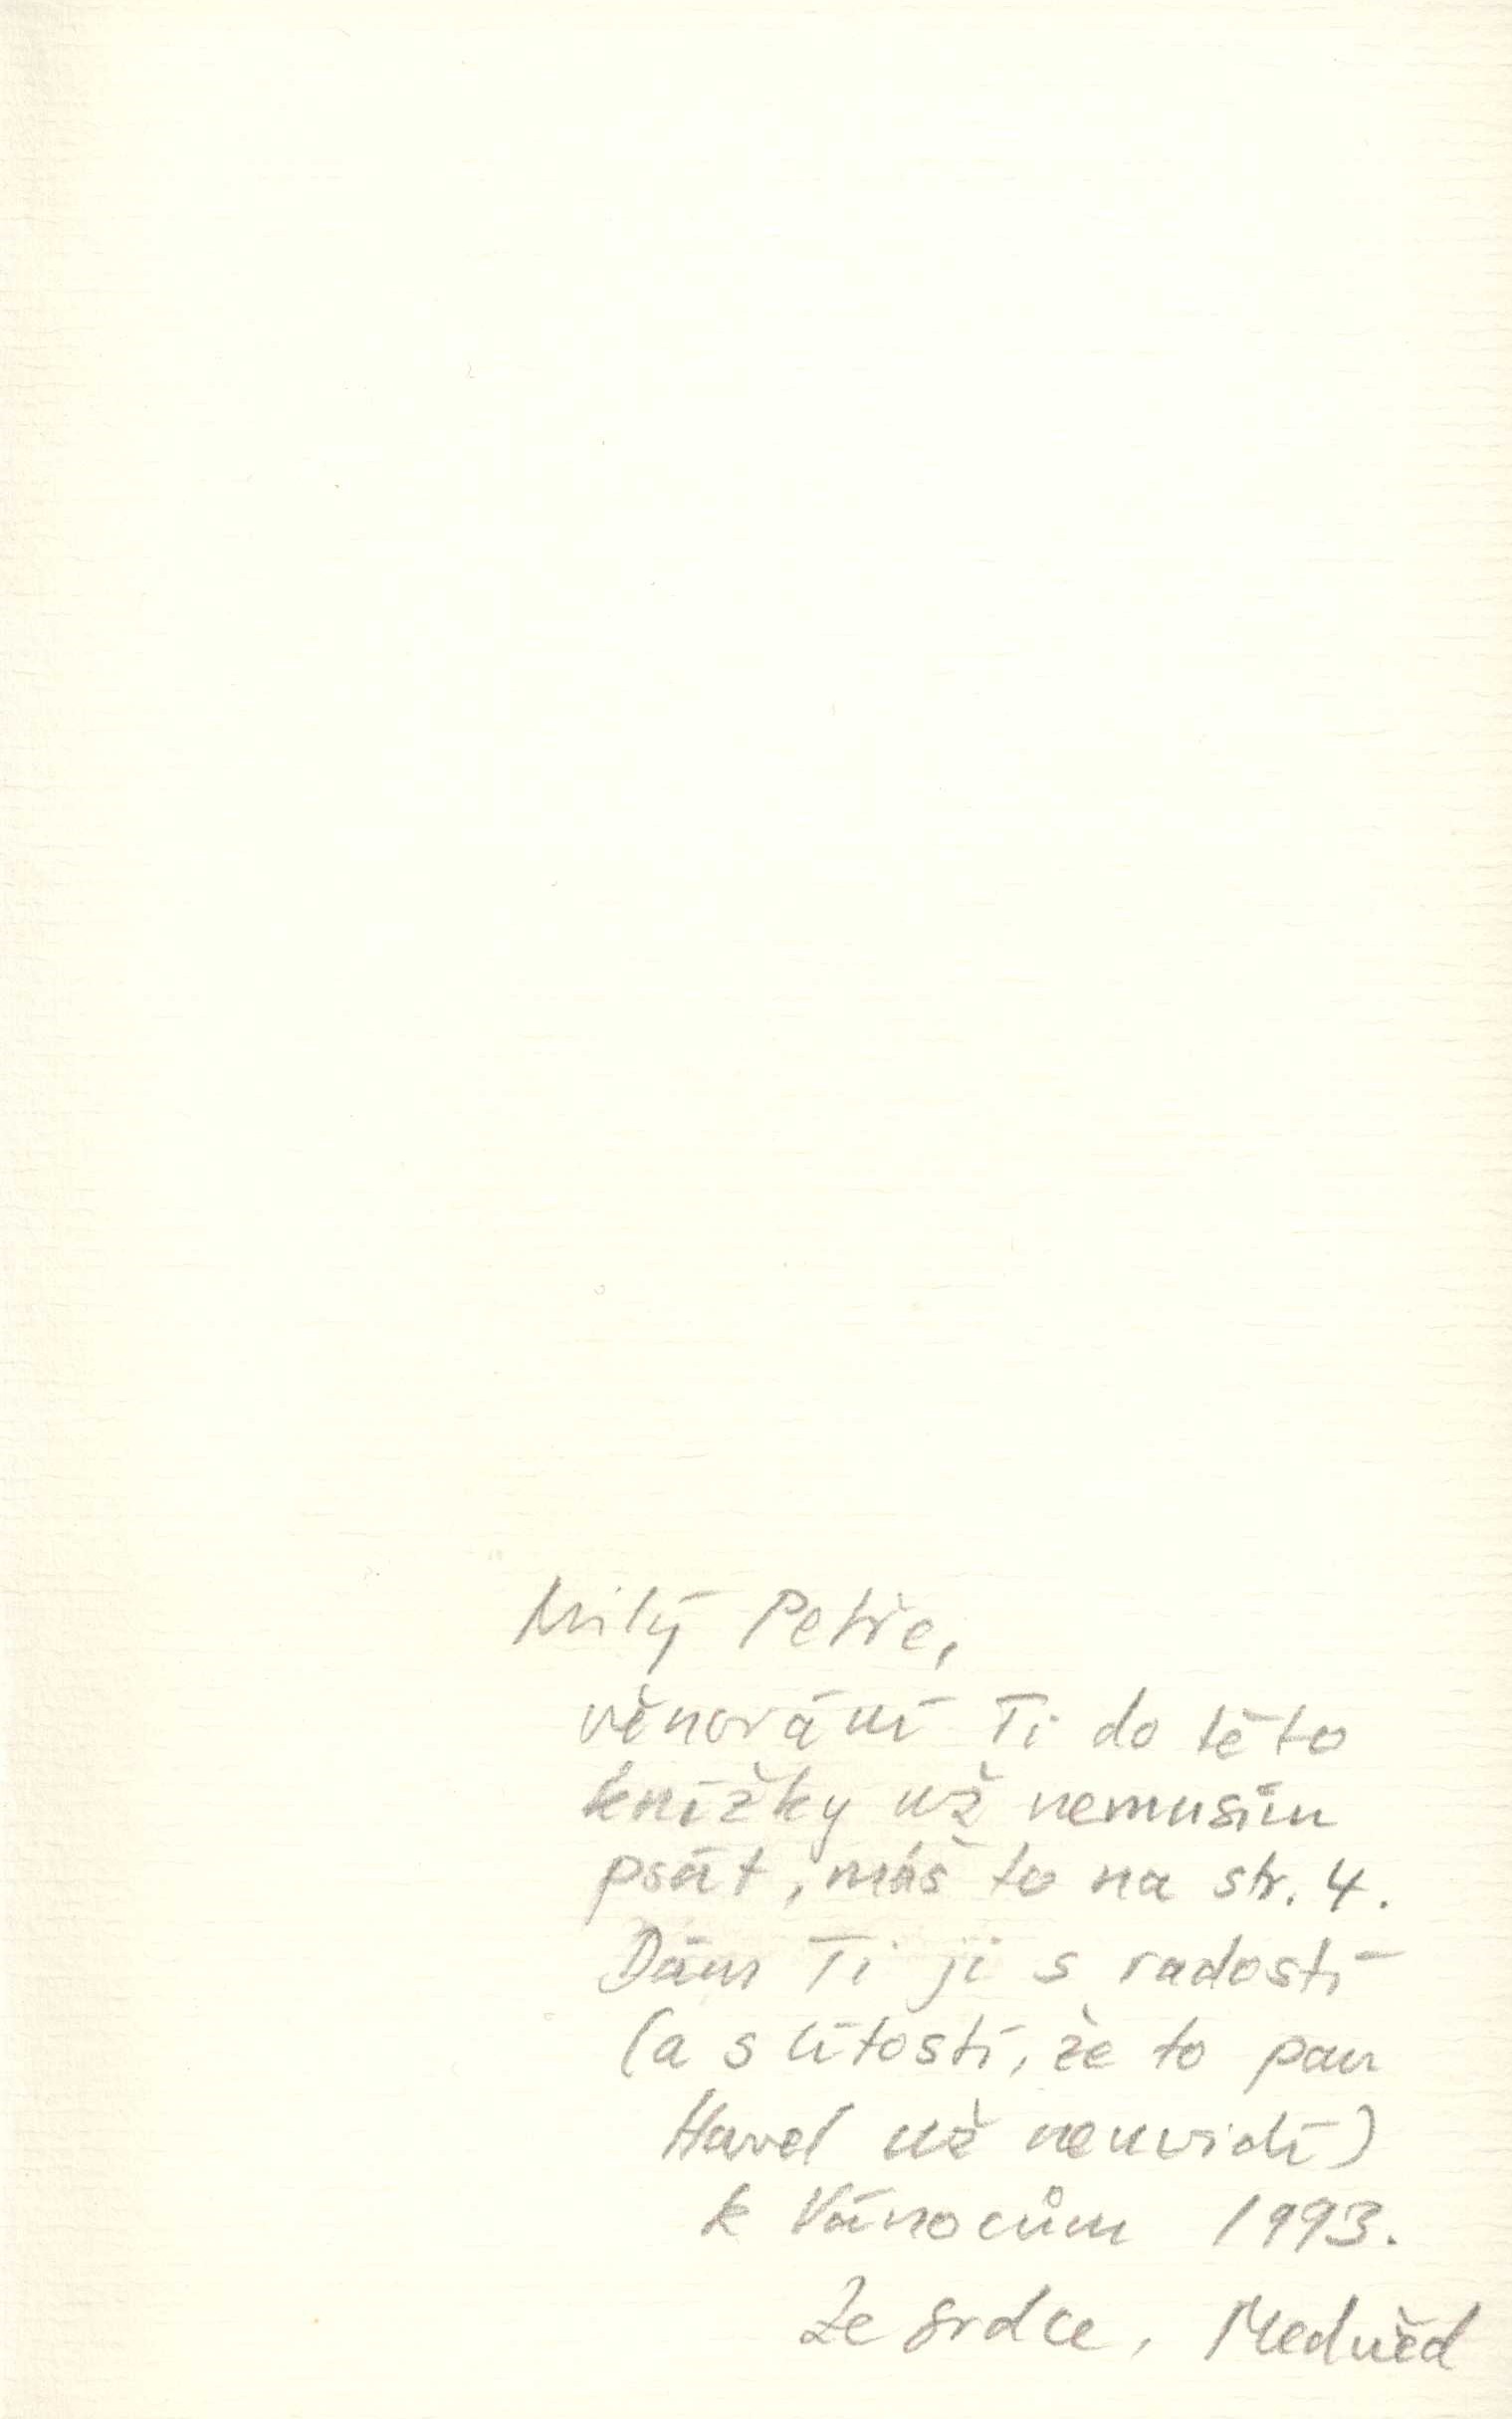 Milý Petře,
věnování Ti do této
knížky už nemusím
psát, máš to na str. 4.
Dám Ti ji s radostí
(a s lítostí, že to pan
Havel už neuvidí)
k Vánocům 1993.
Ze srdce, Medvěd